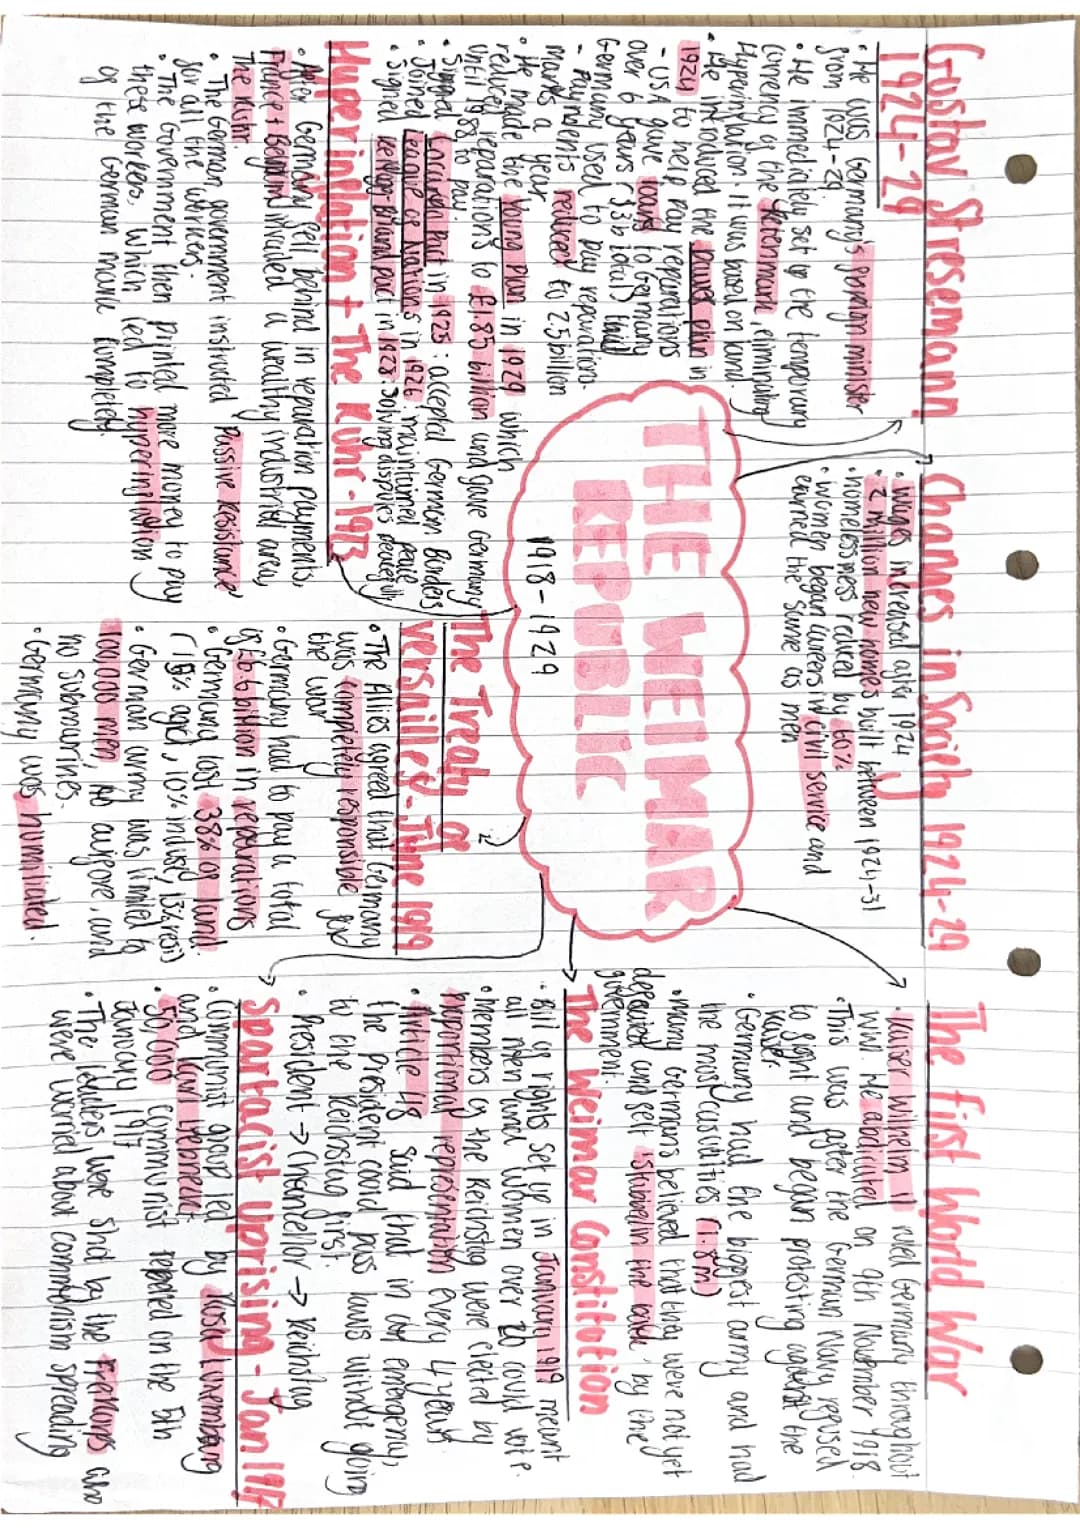 THE WEIMAR
REPUBLIC
1918-1929
Gustav Stresemann
1924-29
• He was Germany's foreign minister
from 1924-29
• He immediately set up the temporary
currency of the Retenmark, eliminating
Hyperinflation. It was based on land.
• He introduced the Dawes plan in
1924 to help pay reparations
- USA gave loans to Germany
over 6 years ($3b total)
Germany used to pay reparations
- Payments reduced to 2.5 billion
marks a year
• He made the Young Plan in 1929 which
reduced reparations to £1.85 billion and gave Germany
until 1988 to pay.
• Signed Locarno Pact in 1925: accepted German Borders
• Joined League of Nations in 1926: maintained peace
• Signed Kellogg-Briand pact in 1928: Solving disputes peacefully
Hyperinflation + The Ruhr - 1923
• After Germany fell behind in reparation payments,
France + Belgium invaded a wealthy industrial area,
The Ruhr
• The German government instructed Passive Resistance
for all the workers.
• The Government then printed more money to pay
these workers. Which led to hyperinflation
of the German marke completely.
Changes in Society 1924-29
• Wages increased after 1924
• 2 million new homes built between 1924-31
• homelessness reduced by 60%
• Women began careers in civil service and
earned the same as men
The Treaty of
Versailles - June 1919
• The Allies agreed that Germany
was completely responsible for
the war
• Germany had to pay a total
of £6.6 billion in reparations
• Germany lost 38% of land.
(15% agri, 10% industry, 13% resi)
• German army was limited to
100,000 men, no airforce, and
no submarines.
• Germany was humiliated.
The First World War
• Kaiser Wilhelm II ruled Germany throughout
WWI. He abdicated on 9th November 1918.
• This was after the German Navy refused
to fight and began protesting against the
Kaiser.
• Germany had the biggest army and had
the most casulties (1.8m)
• Many Germans believed that they were not yet
defeated and felt 'Stabbed in the back' by the
government.
The Weimar Constitution
• Bill of rights set up in January 1919 meant
all men and women over 20 could vote.
• Members of the Reichstag were elected by
proportional representation every 4 years
• Article 48 said that in an emergency,
the president could pass laws without going
to the Reichstag first.
• President → Chancellor → Reichstag
Spartacist Uprising - Jan 1919
• Communist group led by Rosa Luxemburg
and Karl Liebnecht
• 50,000 communist rebeled on the 5th
January 1919
• The leaders were shot by the Freikorps who
were worried about communism spreading